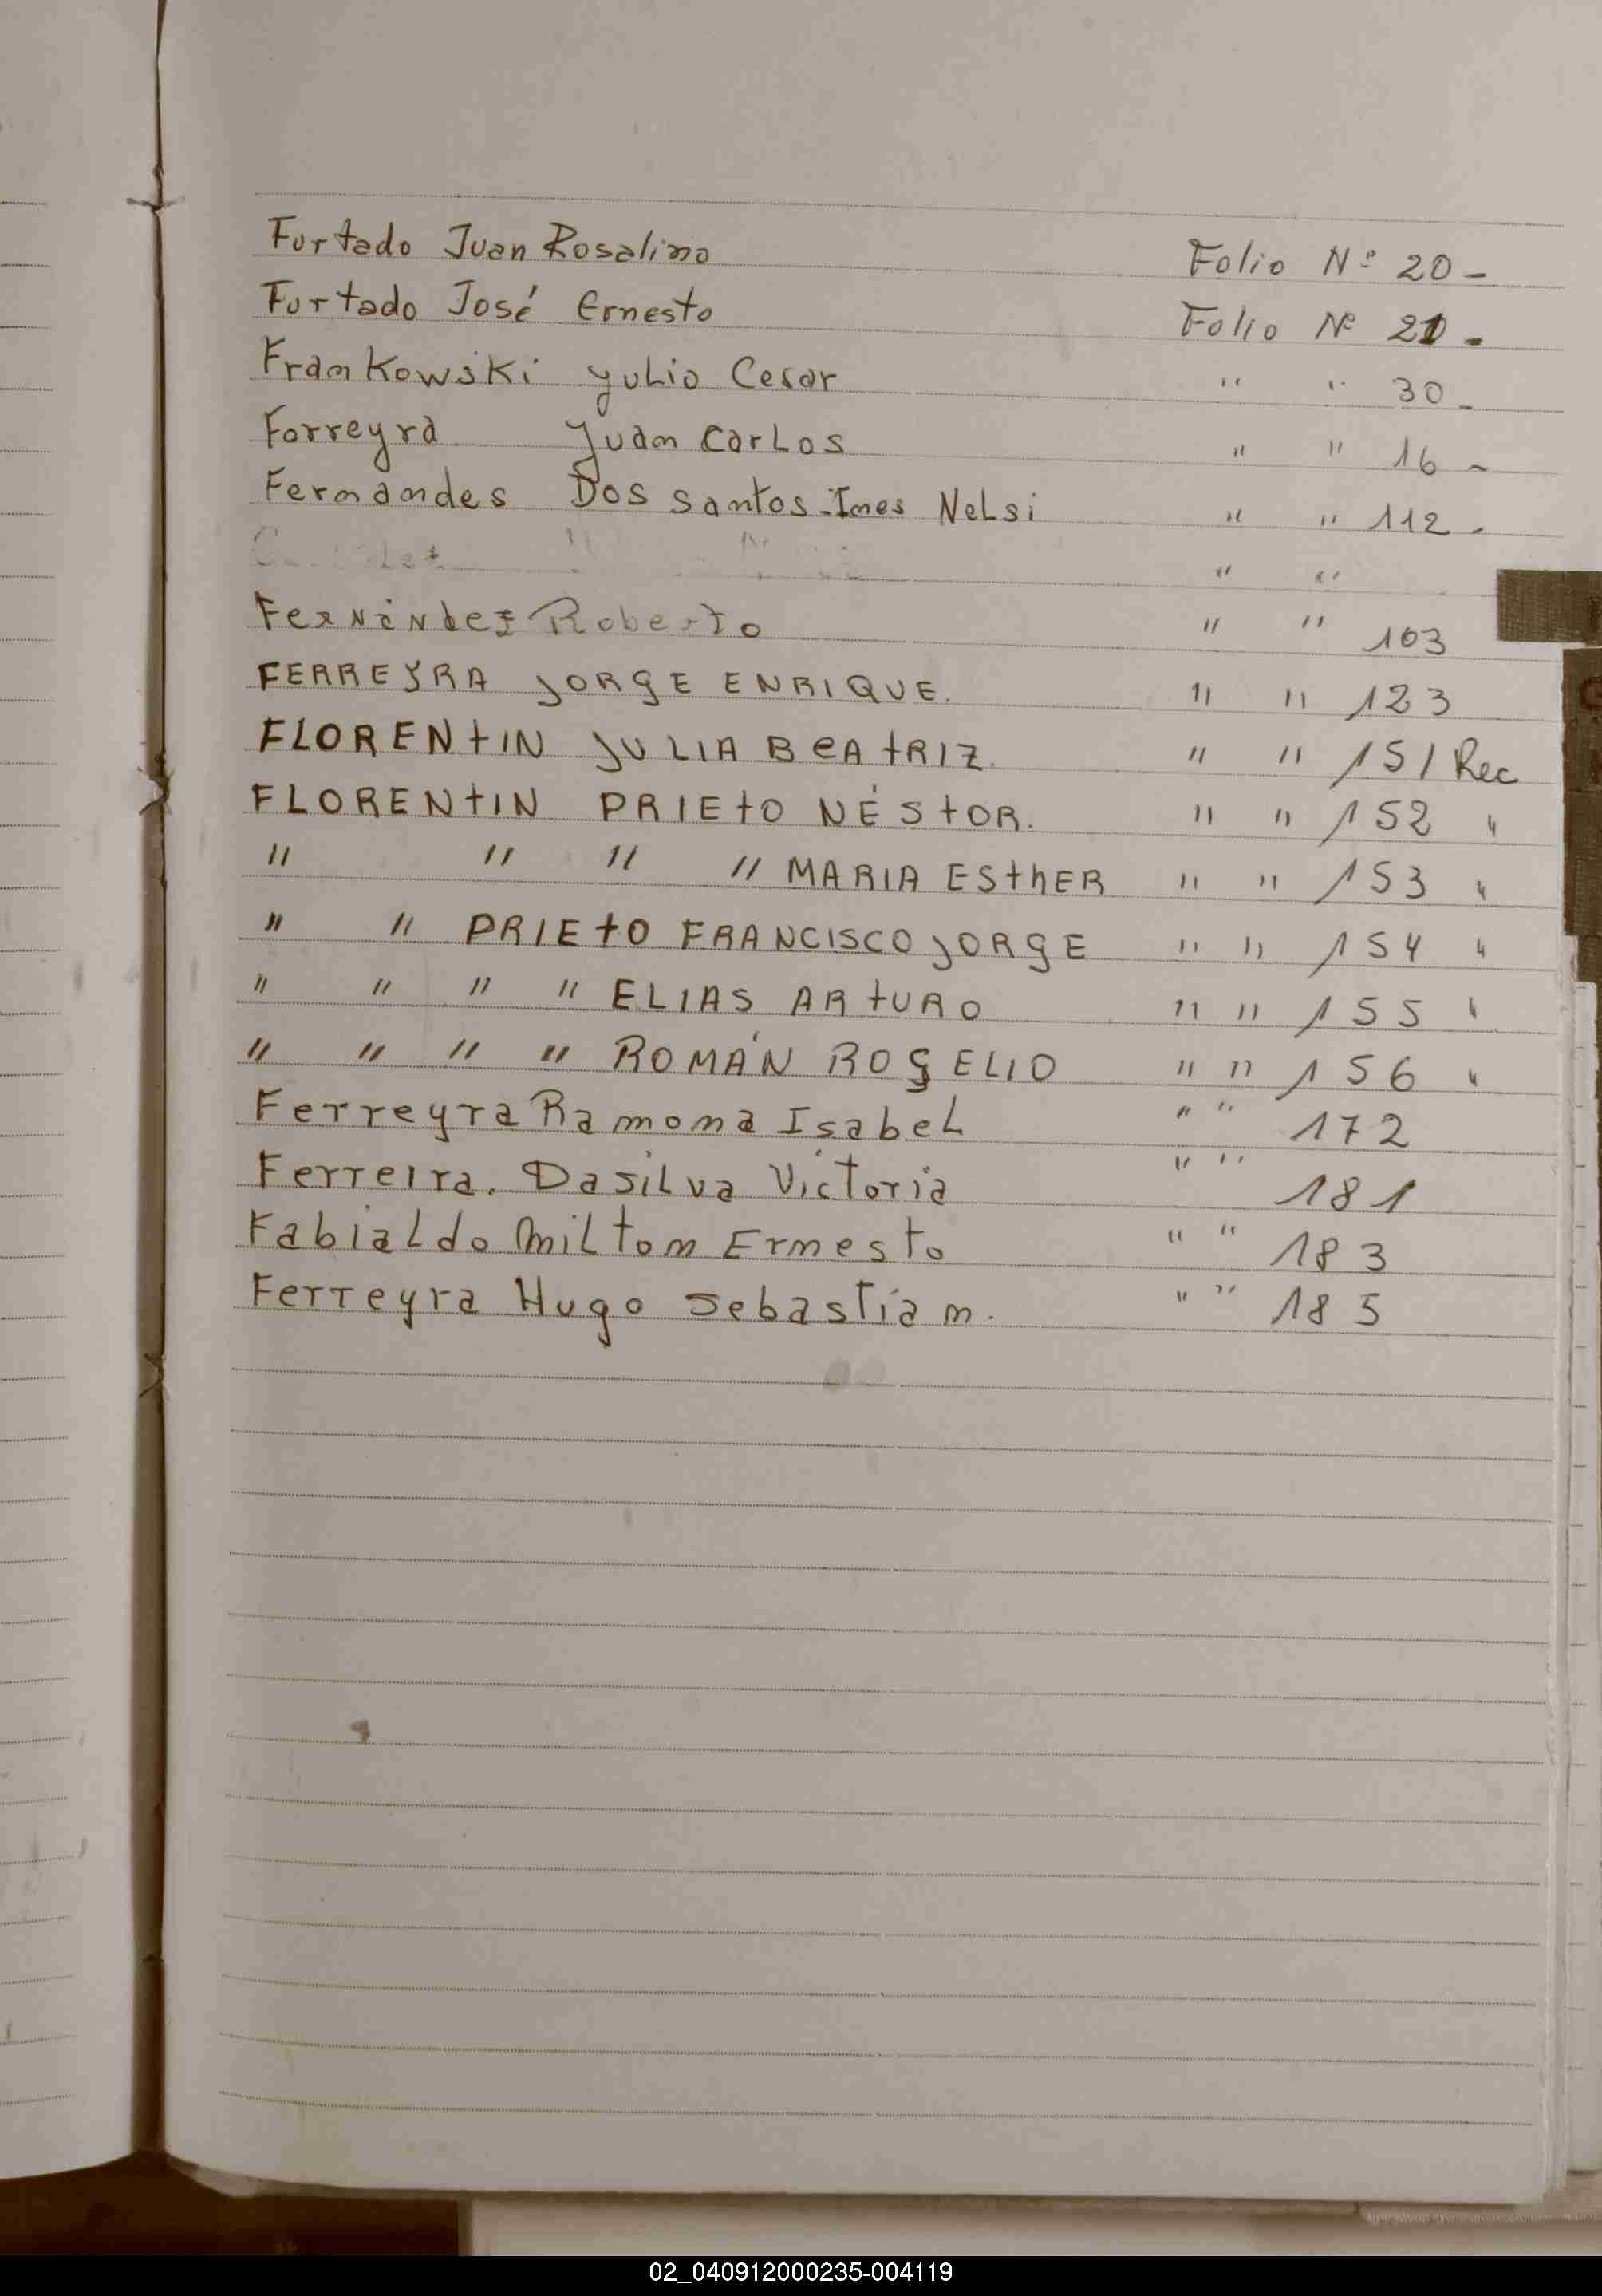 Furtado Juan Rosalino Folio Nº 20 -
Furtado José Ernesto Folio Nº 21 -
Frankowski yulio Cesar " " 30 -
Forreyra Juan Carlos " " 16 -
Fernandes Dos santos - Ines Nelsi " " 112 -
" "
Fernández Roberto " " 103
FERREYRA JORGE ENRIQUE. " " 123
FLORENtIN JULIA BeAtRIZ. " " 151 Rec
FLORENtIN PRIEtO NÉStOR. " " 152 "
" " " " MARIA ESthER " " 153 "
" " PRIEtO FRANCISCO JORGE " " 154 "
" " " " ELIAS ARtURO " " 155 "
" " " " ROMÁN ROGELIO " " 156 "
Ferreyra Ramona Isabel " " 172
Ferreira. Dasilva Victoria " " 181
Fabialdo Milton Ernesto " " 183
Ferreyra Hugo Sebastian. " " 185
02_040912000235-004119